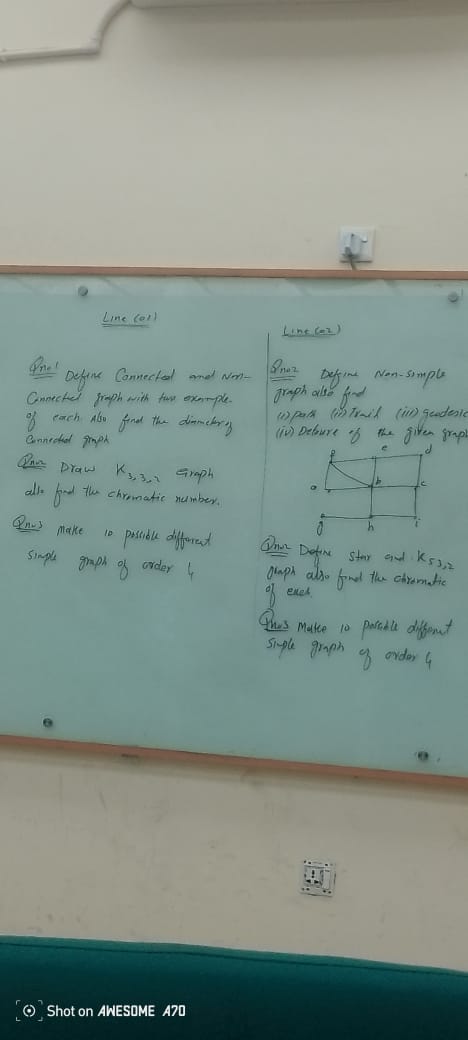 Line (01)
Qno1 Define Connected and Non-
Connected graph with two example
of each Also find the diameter of
Connected graph
Qno2 Draw K3,3,2 Graph
also find the chromatic number.
Qno3 Make 10 possible different
simple graph of order 4
Line (02)
Define Non-simple
graph also find
(i) path (ii) Trail (iii) geodesic
(iv) Detoure of the given graph
e d
a b c
g h i
Qno2 Define star and K53,2
graph also find the chromatic
of each
Qno3 Make 10 possible different
simple graph of order 4
Shot on AWESOME A70